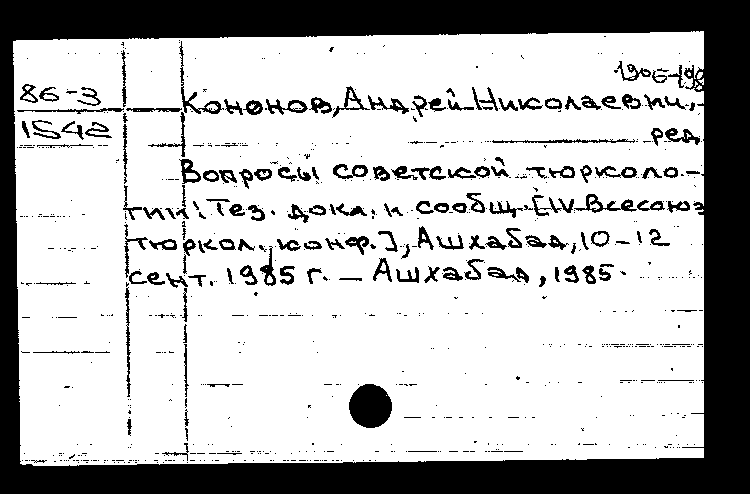 1906-198
86-3
Кононов, Андрей Николаевич,
1542
ред
Вопросы советской тюрколо-
гии: Тез. докл. и сообщ. [IV Всесоюз
тюркол. конф.], Ашхабад, 10-12
сент. 1985 г. — Ашхабад, 1985.